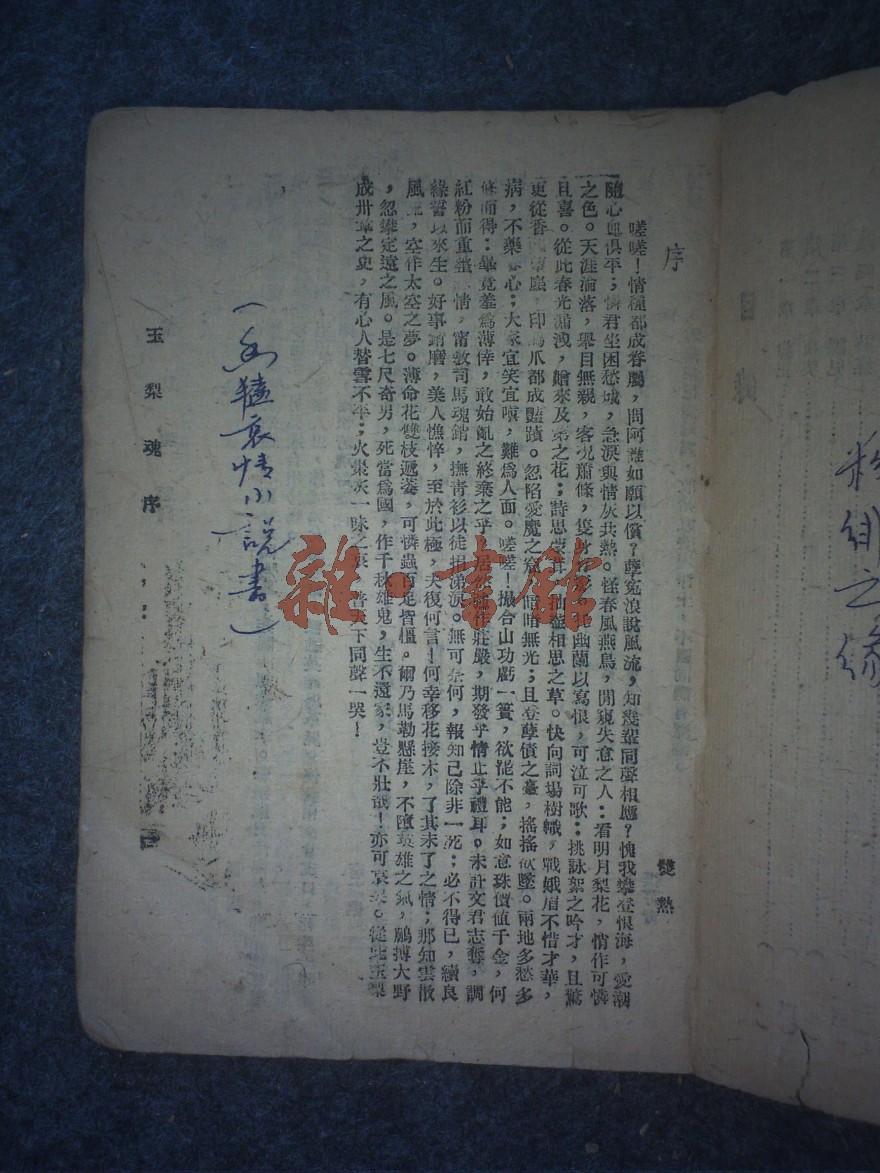 序
雙熱
嗟嗟！情種都成眷屬，問阿誰如願以償？孽冤浪說風流，知幾輩同聲相應？愧我攀登恨海，愛潮
隨心血俱平；憐君坐困愁城，急淚與情灰共熱。怪春風燕鳥，閒窺失意之人：看明月梨花，悄作可憐
之色。天涯淪落，舉目無親，客況蕭條，隻身幽蘭以寫恨，可泣可歌：挑詠絮之吟才，且驚
且喜。從此春光漏洩，繪來及第之花；詩思抽盡相思之草。快向詞場樹幟，戰娥眉不惜才華，
更從香塵，印鴻爪都成豔蹟。忽陷愛魔之窟，暗暗無光；且登孽債之臺，搖搖欲墜。兩地多愁多
病，不樂心；大家宜笑宜嗔，難為人面。嗟嗟！撮合山功虧一簣，欲罷不能；如意珠價值千金，何
修而得：畢竟羞為薄倖，敢始亂之終棄之乎，居然作莊嚴，期發乎情止乎禮耳。未計文君志奪，調
紅粉而重情，甯教司馬魂銷，撫青衫以徒揾涕淚。無可奈何，報知己除非一死：必不得已，續良
緣誓以來生。好事銷磨，美人憔悴，至於此極，夫復何言！何幸移花接木，了其未了之情；那知雲散
風流，空作太空之夢。薄命花雙枝遞萎，可憐蟲百足皆殭。爾乃馬勒懸崖，不墮英雄之氣，鵬搏大野
，忽攀定遠之風。是七尺奇男，死當為國，作千秋雄鬼，生不還家，豈不壯哉！亦可哀矣。從此玉梨
成卅章之史，有心人替雪不平：火棗灰一味之哀，普天下同聲一哭！
哀情小說書）
玉梨魂序
之缘
目錄
雜·書館